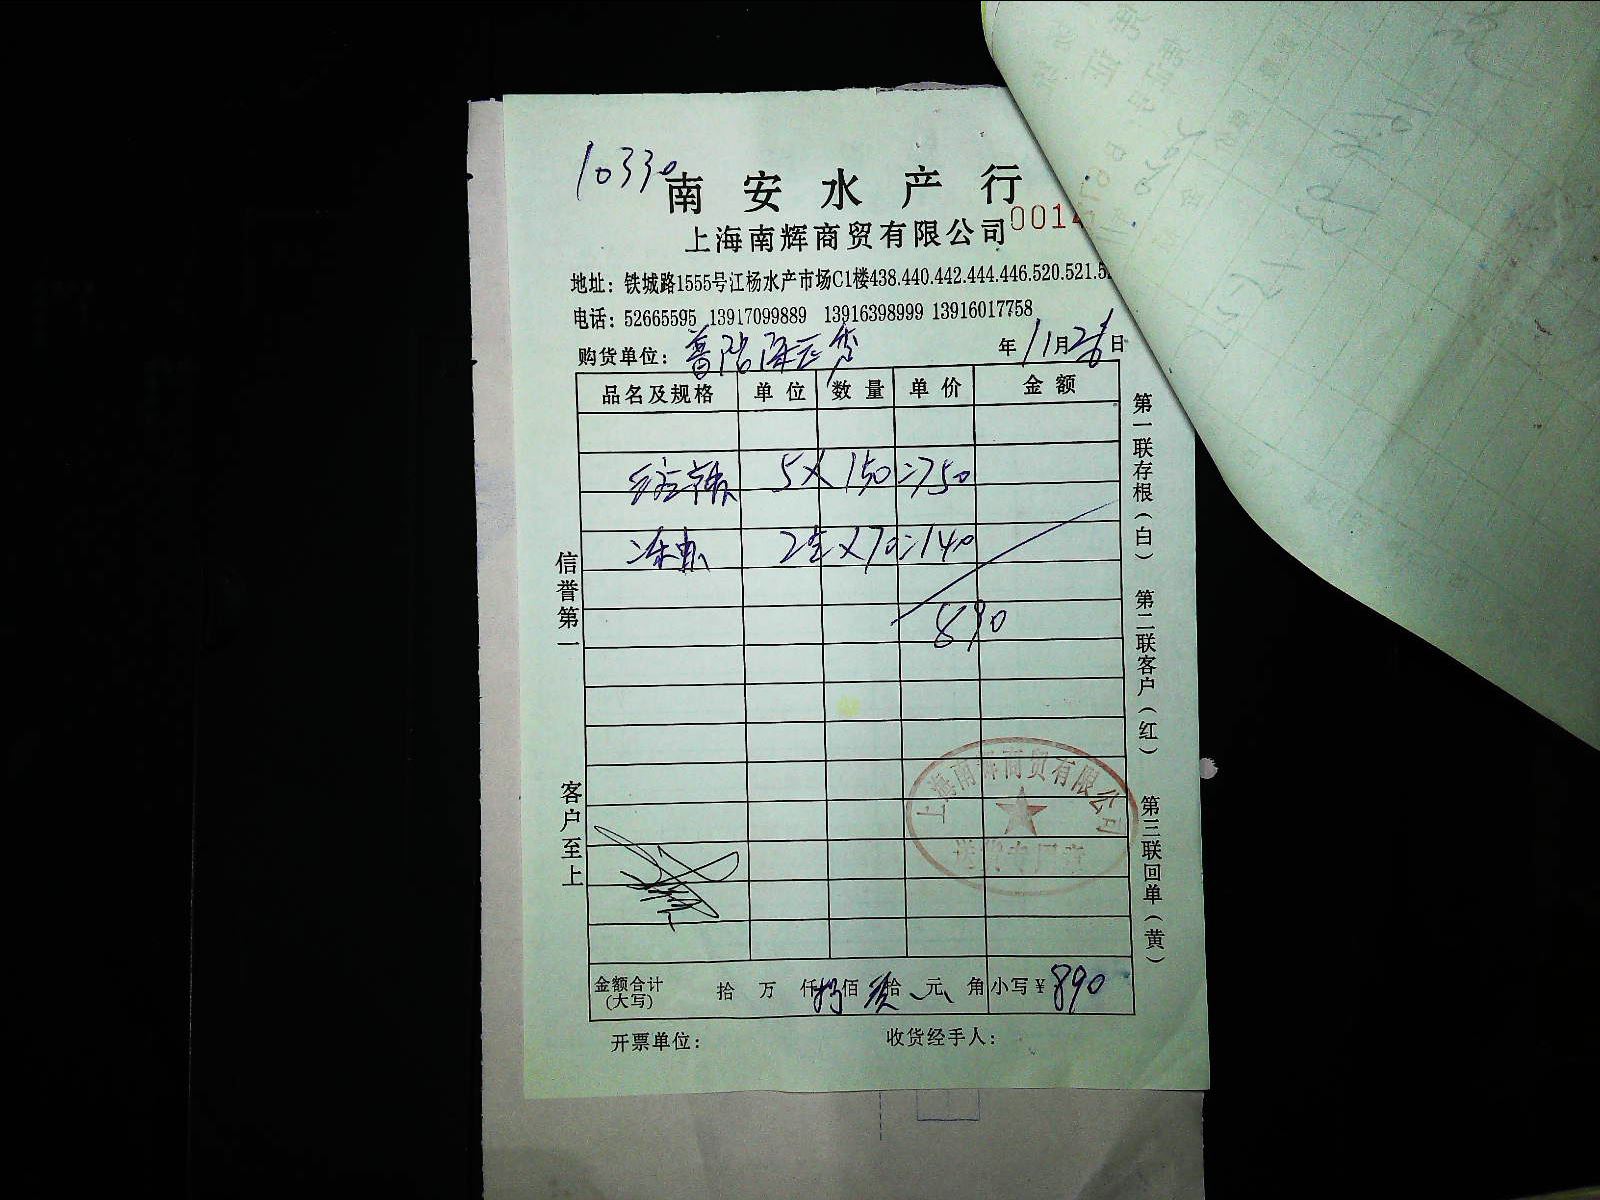 10330
南安水产行
上海南辉商贸有限公司 0014
地址：铁城路1555号江杨水产市场C1楼438.440.442.444.446.520.521.5
电话：52665595 13917099889 13916398999 13916017758
购货单位：普陀 年11月26日
品名及规格 单位 数量 单价 金额
5×150=750
2 ×70=140
890
信誉第一
客户至上
第一联存根（白）
第二联客户（红）
第三联回单（黄）
上海南辉商贸有限公司
金额合计（大写） 拾 万 仟捌佰玖拾 元 角 小写¥890
开票单位： 收货经手人：